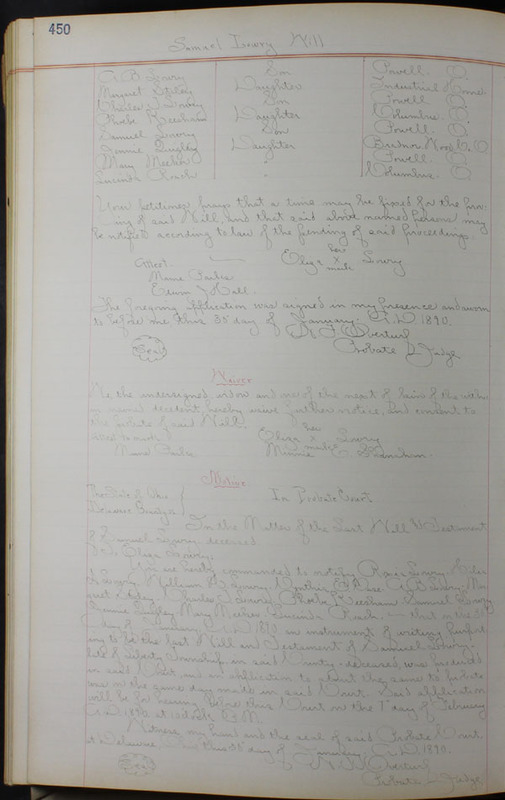 450
Samuel Lowry Will
A. B. Lowry Son Powell O.
Margaret Daughter Industrial Home
Charles Lowry Son Powell O.
Phoebe Daughter Columbus. O.
Samuel Lowry Son Powell. O.
Jennie Quigley Daughter O
Mary " Powell. O.
Lucinda Roach " Columbus. O
Your petitioner prays that a time may be fixed for the pro-
ving of said Will, and that said above named persons may
be notified according to law of the pending of said proceedings.
Attest her
Eliza x Lowry
mark
Edwin J. Hall.
The foregoing application was signed in my presence and sworn
to before me this day of January A.D. 1890.
Probate Judge
Seal
Waiver
We the undersigned, widow and one of the next of kin of the with-
in named decedent, hereby waive further notice, and consent to
the probate of said Will.
her
Eliza x Lowry
mark
Minnie
Notice
The State of Ohio
Delaware County ss. In Probate Court
In the Matter of the Last Will & Testament
of Samuel Lowry, deceased
To Eliza Lowry,
You are hereby commanded to notify Lowry,
Lowry, William Lowry, A. B. Lowry, Mar-
garet Charles Lowry, Phoebe Samuel Lowry
Jennie Quigley, Mary Lucinda Roach, that on the
day of January A.D. 1890 an instrument of writing purport-
ing to be the last Will and Testament of Samuel Lowry,
late of Liberty Township, in said County, deceased, was produced
in said Court, and an application to admit the same to probate
was on the same day made in said Court. Said application
will be for hearing before this Court on the 1st day of February
A.D. 1890, at 10 o'clock A.M.
Witness my hand and the seal of said Probate Court,
at Delaware, this day of January, A.D. 1890.
Seal
Probate Judge